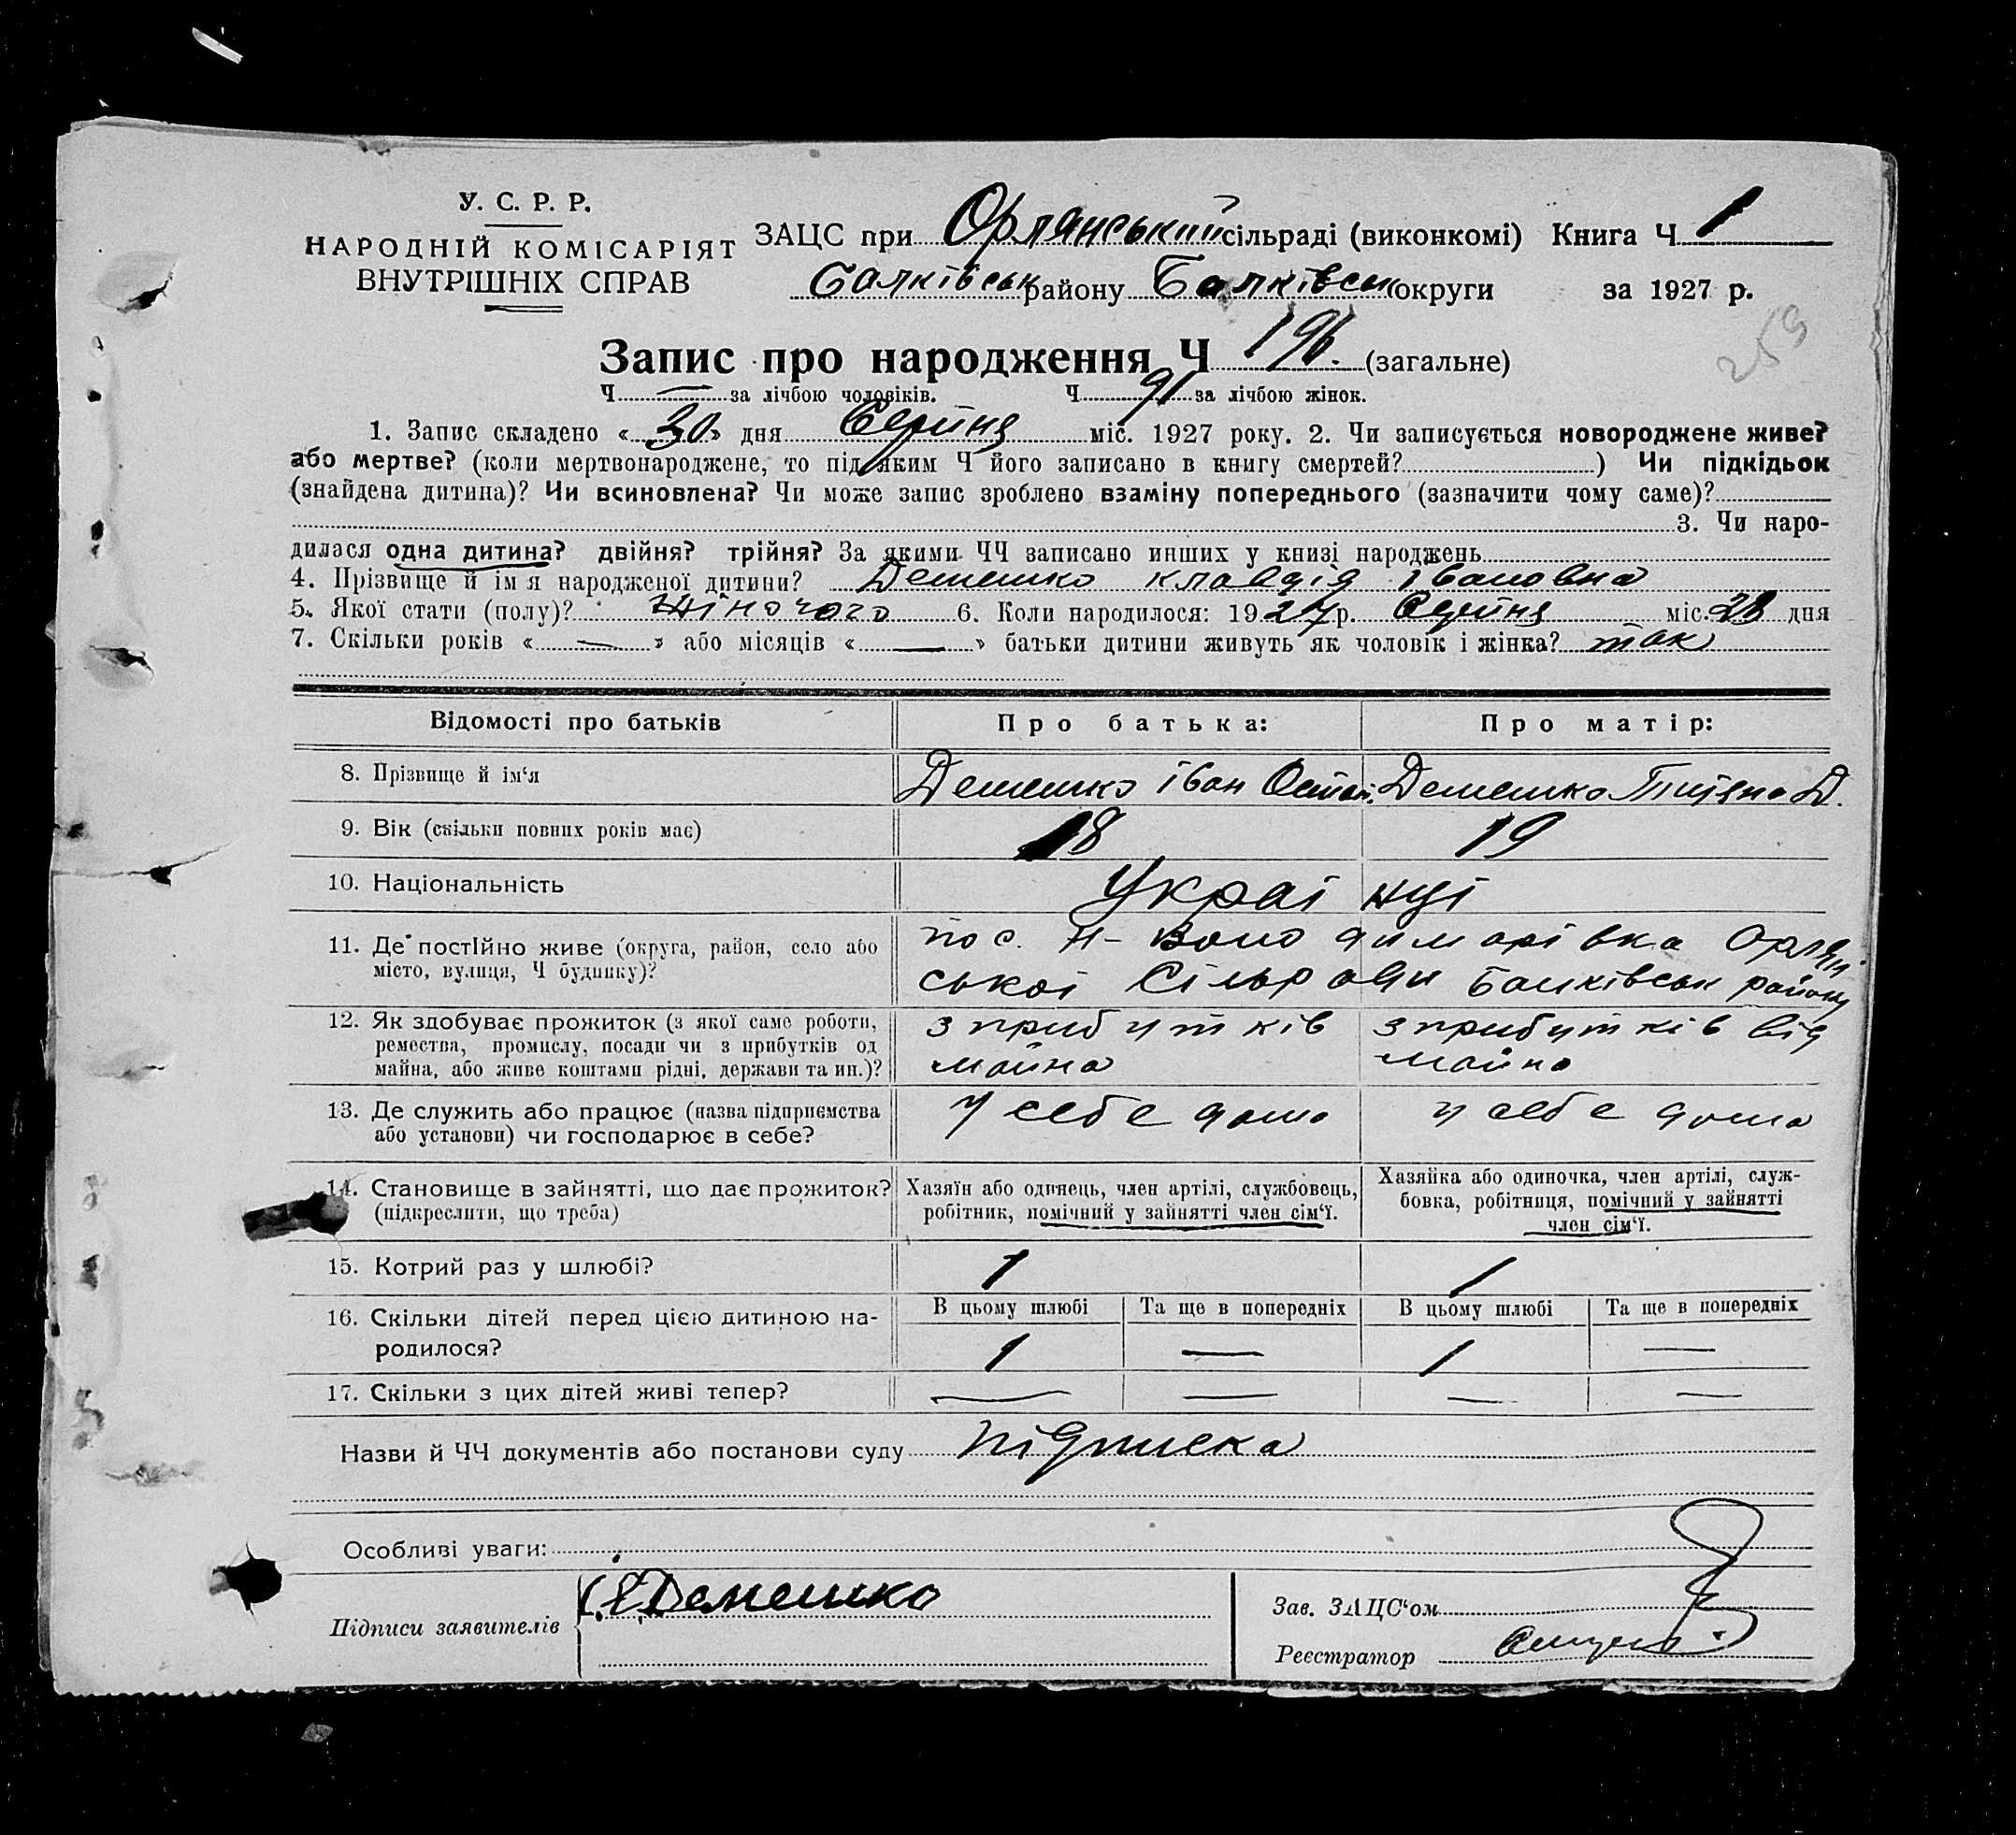 У. С. Р. Р.
НАРОДНІЙ КОМІСАРІЯТ
ВНУТРІШНІХ СПРАВ
ЗАЦС при Орлянський сільраді (виконкомі) Книга Ч 1
Балківськ району Балківськ округи за 1927 р.
259
Запис про народження Ч 196. (загальне)
Ч — за лічбою чоловіків. Ч 91 за лічбою жінок.
1. Запис складено « 30 » дня Серпня міс. 1927 року. 2. Чи записується новороджене живе?
або мертве? (коли мертвонароджене, то під яким Ч його записано в книгу смертей? ) Чи підкідьок
(знайдена дитина)? Чи всиновлена? Чи може запис зроблено взаміну попереднього (зазначити чому саме)?
3. Чи наро-
дилася одна дитина? двійня? трійня? За якими ЧЧ записано инших у книзі народжень
4. Прізвище й імя народженої дитини? Демешко Клавдія Івановна
5. Якої стати (полу)? Жіночого 6. Коли народилося: 1927 р. Серпня міс. 28 дня
7. Скільки років « — » або місяців « — » батьки дитини живуть як чоловік і жінка? так
Відомості про батьків Про батька: Про матір:
8. Прізвище й ім‘я Демешко Іван Демешко Титяна Д.
9. Вік (скільки повних років має) 18 19
10. Національність Украінці
11. Де постійно живе (округа, район, село або пос. Н-Володимирівка Орлян
місто, вулиця, Ч будинку)? ської Сільради Балківськ району
12. Як здобуває прожиток (з якої саме роботи, з прибутків з прибутків від
ремества, промислу, посади чи з прибутків од
майна, або живе коштами рідні, держави та ин.)? майна майна
13. Де служить або працює (назва підприємства у себе дома у себе дома
або установи) чи господарює в себе?
14. Становище в зайнятті, що дає прожиток? Хазяїн або одинець, член артілі, службовець, Хазяйка або одиночка, член артілі, служ-
(підкреслити, що треба) робітник, помічний у зайнятті член сім‘ї. бовка, робітниця, помічний у зайнятті
член сім‘ї.
15. Котрий раз у шлюбі? 1 1
16. Скільки дітей перед цією дитиною на- В цьому шлюбі Та ще в попередніх В цьому шлюбі Та ще в попередніх
родилося? 1 — 1 —
17. Скільки з цих дітей живі тепер? — — — —
Назви й ЧЧ документів або постанови суду підписка
Особливі уваги:
Підписи заявителів Демешко
Зав. ЗАЦС‘ом
Реєстратор